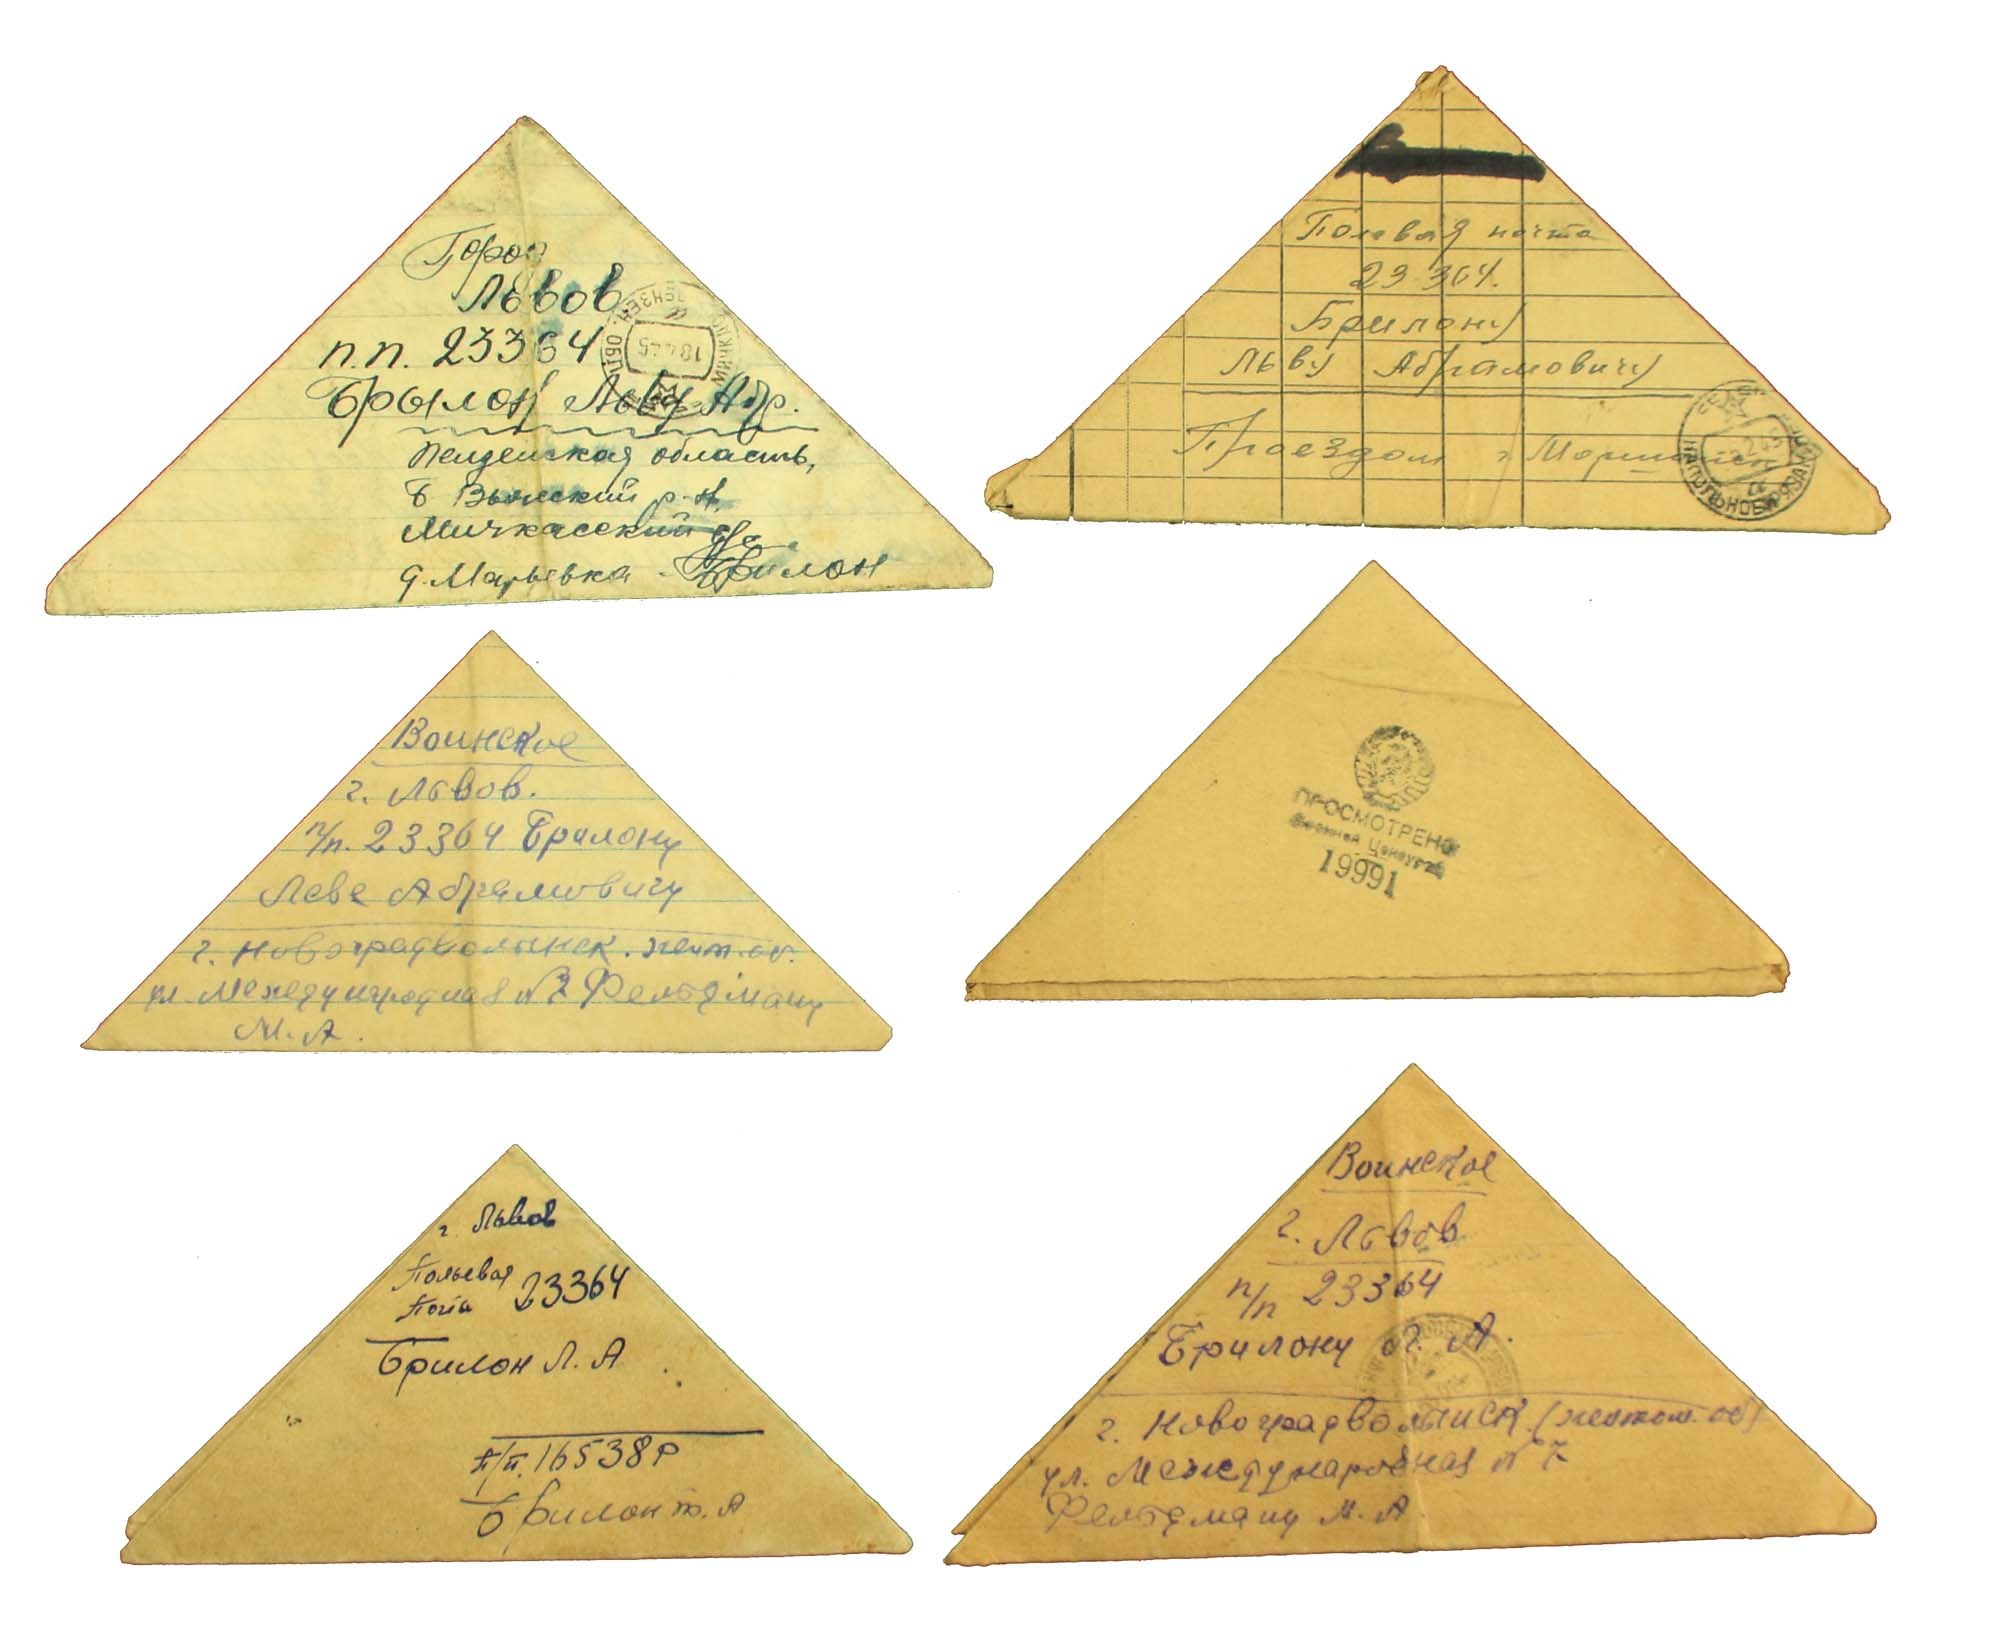 Город
Львов
п.п. 23364
Брылон Льву Абр.
Пензенская область,
Б Вьясский р-н,
Мичкасский с/с
д. Марьевка Брилон
18 4 45
Полевая почта
23 364.
Брилону
Льву Абрамовичу
Проездом г Моршанск
Воинское
г. Львов.
п/п. 23364 Брилону
Леве Абрамовичу
г. Новоградволынск. жит. об.
ул. Международная №7 Фельдману
М. А.
ПРОСМОТРЕНО
Военной Цензурой
19991
г Львов
Польевая
Почта 23364
Брилон Л. А
п/п. 16538Р
Брилон т. А
Воинское
г. Львов
п/п 23364
Брилону Л. А.
г. Новоградволынск. (житом. об)
ул. Международная №7
Фельдману М. А.